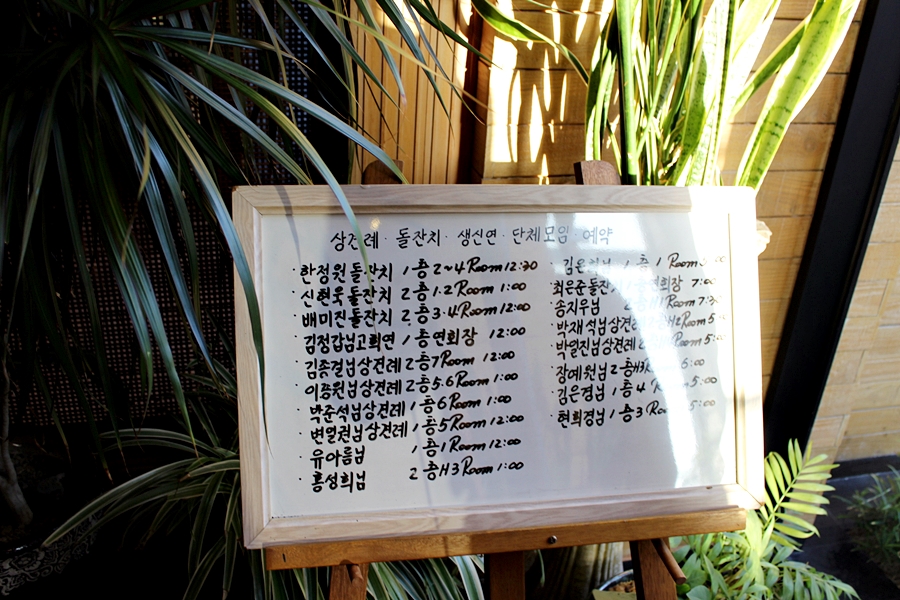 상견례 · 돌잔치 · 생신연 · 단체모임 · 예약
· 한정원돌잔치 1층 2~4 Room 12:30
· 신현욱돌잔치 2층 1.2 Room 1:00
· 배미진돌잔치 2층 3.4 Room 12:00
· 김정갑님고희연 1층연회장 12:00
· 김종걸님상견례 2층 7 Room 12:00
· 이종원님상견례 2층 5.6 Room 1:00
· 박준석님상견례 1층 6 Room 1:00
· 변열권님상견례 1층 5 Room 12:00
· 유아름님 1층 1 Room 12:00
· 홍성희님 2층 H3 Room 1:00
1층 1 Room
최은준돌잔치 연회장 7:00
송지우님 Room
박재석님상견례 Room
박열진님상견례 Room
장예원님 2층 H3
김은경님 1층 4
현희경님 1층 3